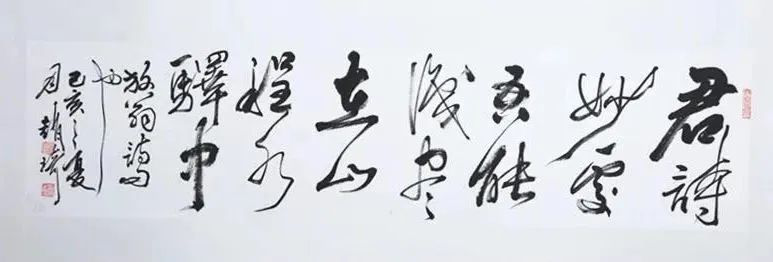 君詩
妙處
吾能
識尽
在山
程水
驛中
放翁詩句
也
己亥之夏
月